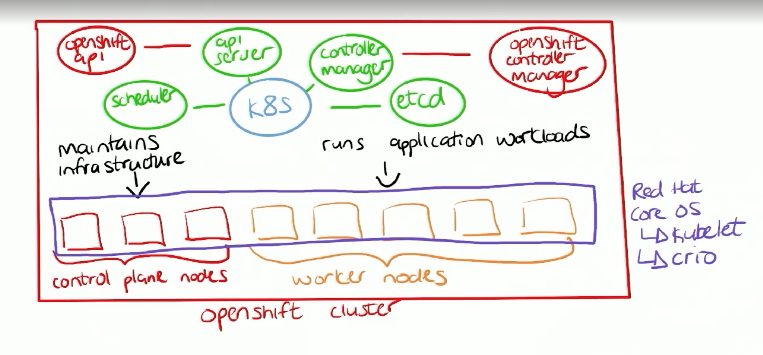 openshift
api
api
server
controller
manager
openshift
controller
manager
scheduler
K8S
etcd
maintains
infrastructure
runs application workloads
Red Hat
Core OS
↳ Kubelet
↳ crio
control plane nodes
worker nodes
openshift cluster